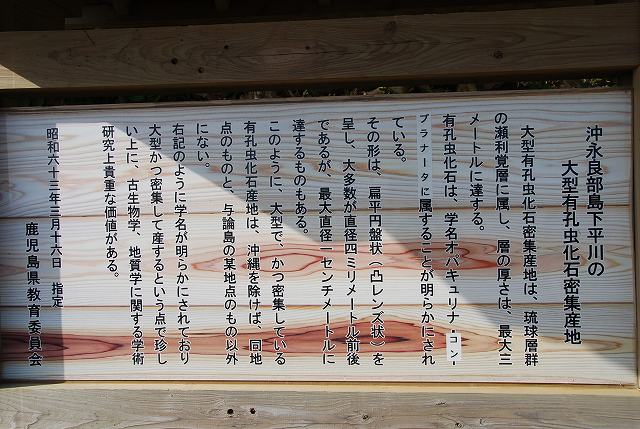 沖永良部島下平川の
大型有孔虫化石密集産地
大型有孔虫化石密集産地は、琉球層群
の瀬利覚層に属し、層の厚さは、最大三
メートルに達する。
有孔虫化石は、学名オパキュリナ・コン-
プラナータに属することが明らかにされ
ている。
その形は、扁平円盤状（凸レンズ状）を
呈し、大多数が直径四ミリメートル前後
であるが、最大直径一センチメートルに
達するものもある。
このように、大型で、かつ密集している
有孔虫化石産地は、沖縄を除けば、同地
点のものと、与論島の某地点のもの以外
にない。
右記のように学名が明らかにされており
大型かつ密集して産するという点で珍し
い上に、古生物学、地質学に関する学術
研究上貴重な価値がある。
昭和六十三年三月十六日 指定
鹿児島県教育委員会